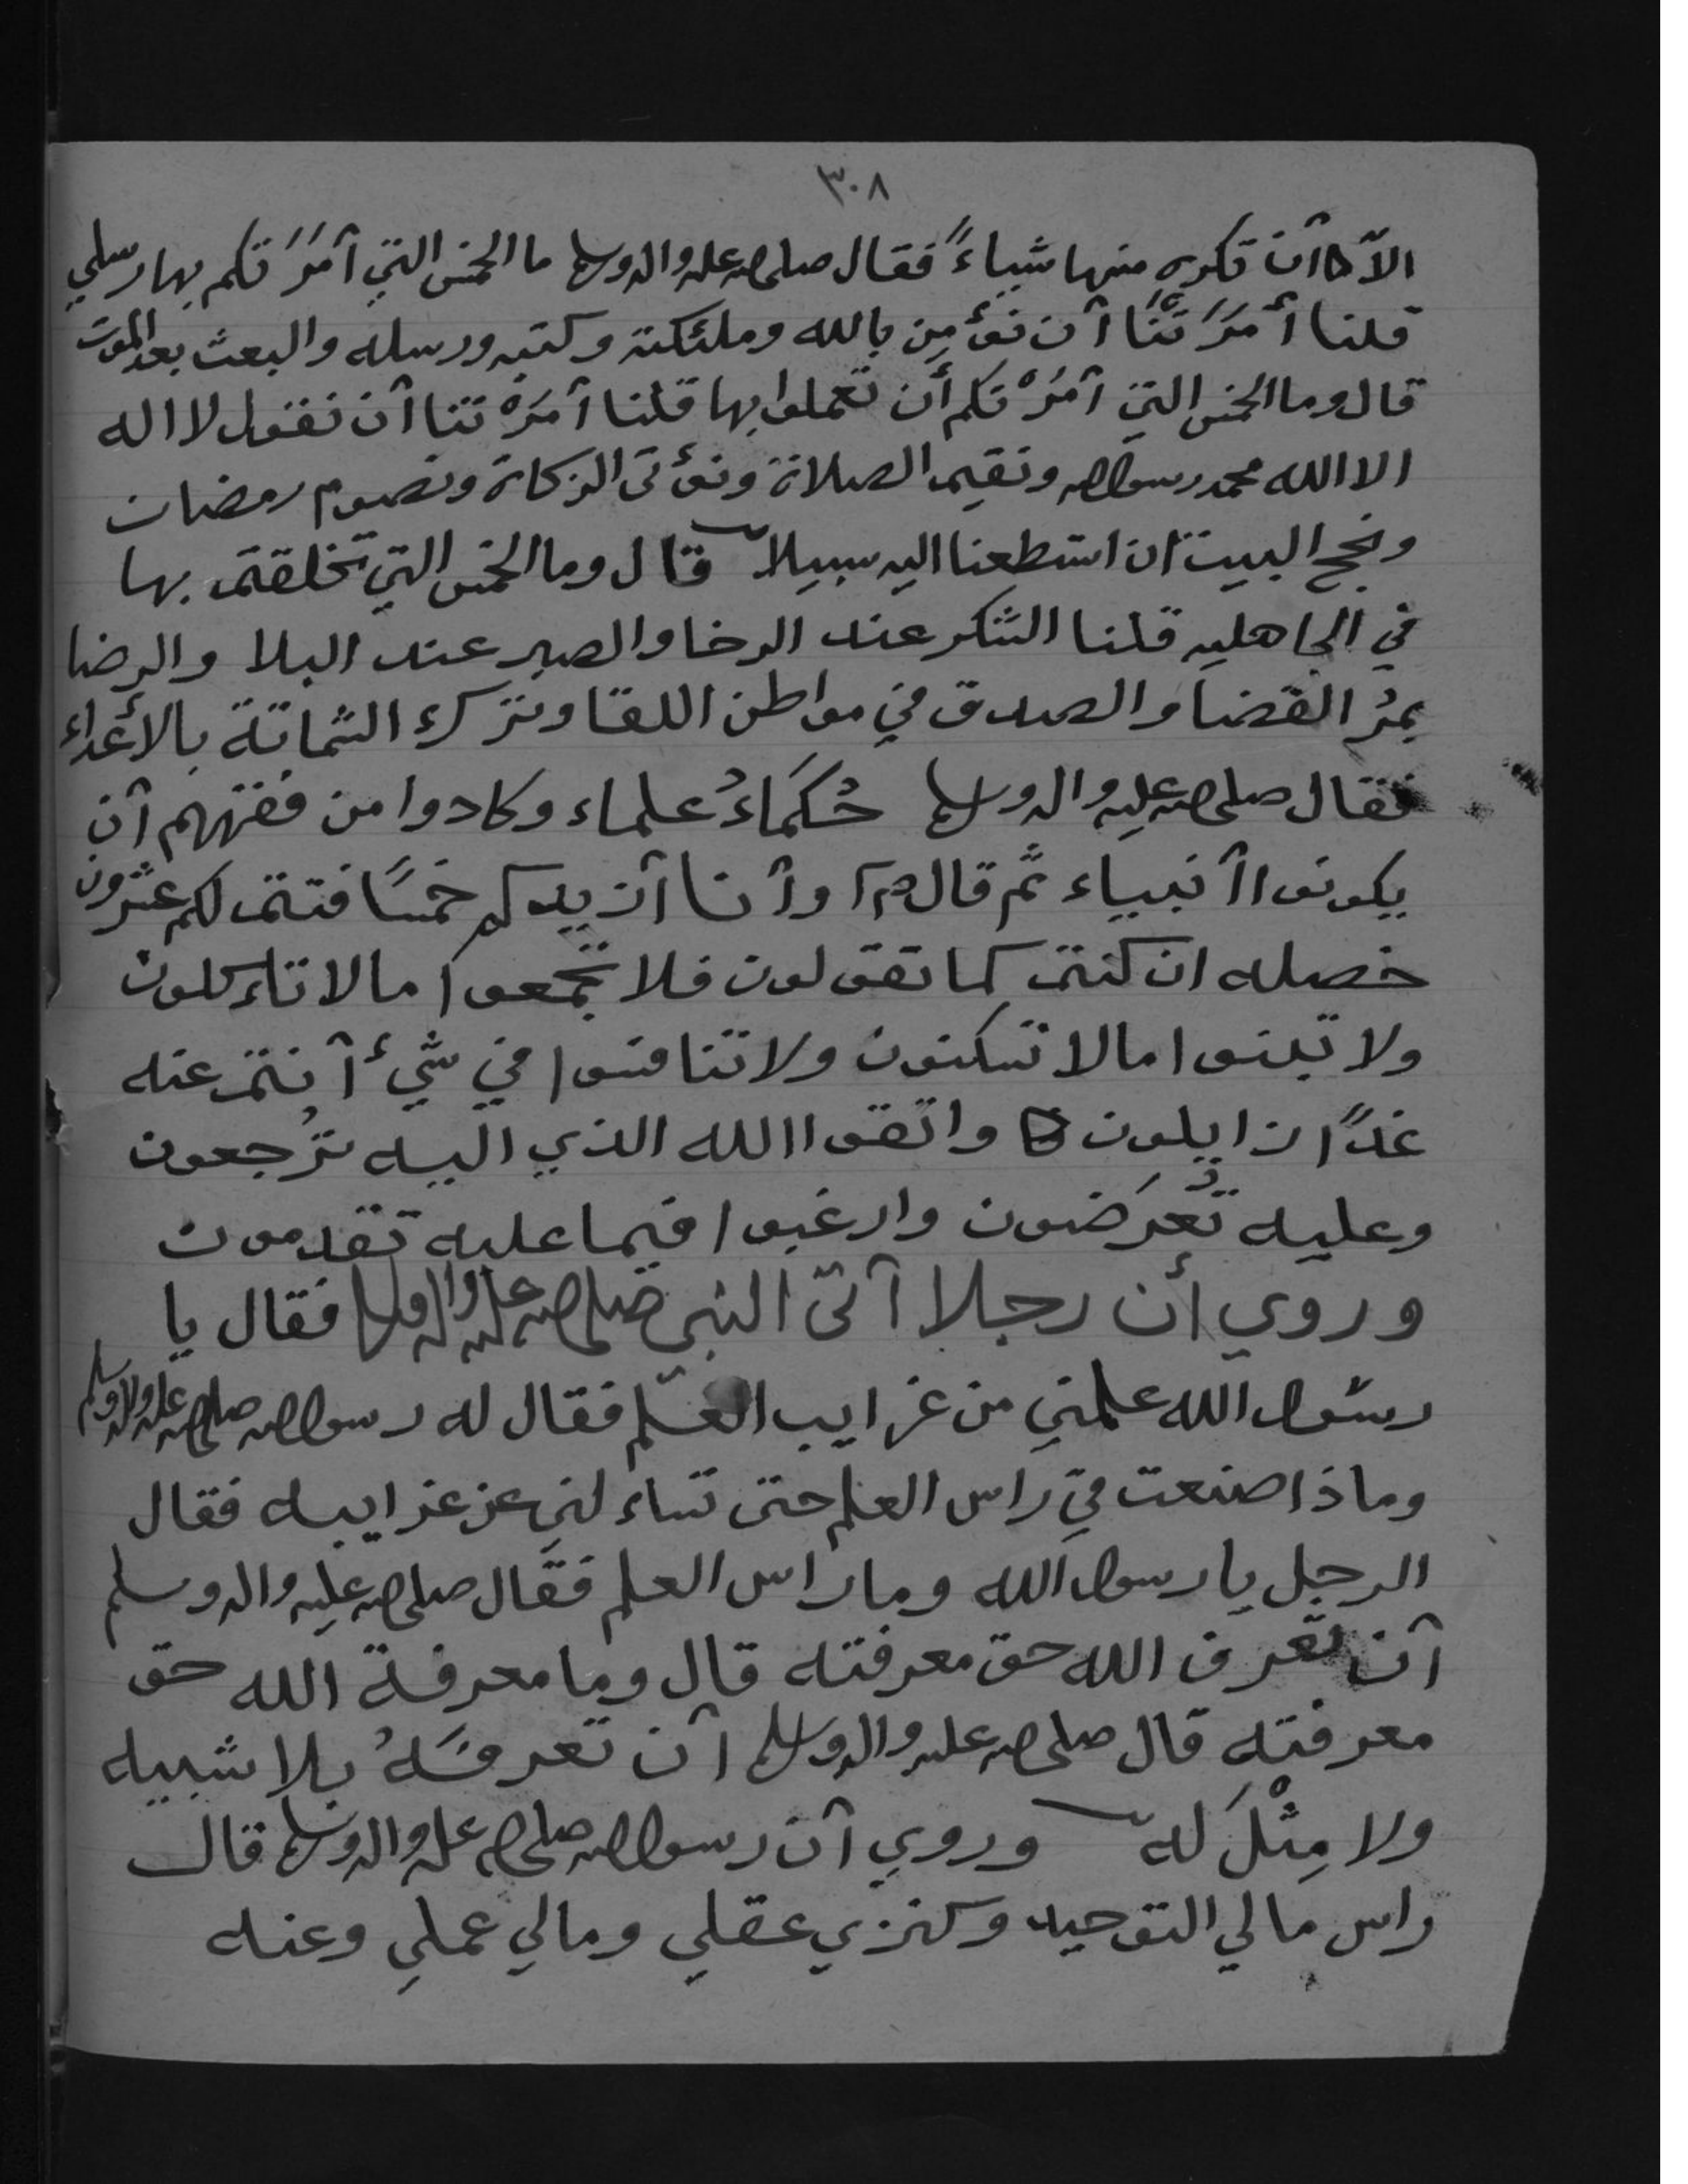 ٣٠٨
الاّ أن تكره منها شياءً فقال صلى الله عليه واله وسلم ما الخمس التي أمَرَتكم بها رسلي
قلنا أمَرَتنَا أن نؤمِن بالله وملئكته وكتبه ورسله والبعث بعد الموت
قال وما الخمس التي أمَرْتكم أن تعملوا بها قلنا أمَرْتنا أن نقول لا اله
الا الله محمد رسول الله ونقيم الصلاة ونؤتى الزكاة ونصوم رمضان
ونحج البيت ان استطعنا اليه سبيلا قال وما الخمس التي تخلقتم بها
في الجاهليه قلنا الشكر عند الرخا والصبر عند البلا والرضا
بمرُ القضا والصدق في مواطن اللقا وترك الشماتة بالأعداء
فقال صلى الله عليه واله وسلم حُكَمَاءُ علماء وكادوا من فقههم أن
يكونوا أنبياء ثمّ قال وأنا أزيدكم خمسًا فتتم لكم عشرون
خصله ان كنتم كما تقولون فلا تجمعوا ما لا تاءكلون
ولا تبنوا ما لا تسكنون ولا تنافسوا في شيء أنتم عنه
غدًا زايلون واتقوا الله الذي اليه تُرجعون
وعليه تُعرَضون وارغبوا فيما عليه تقدمون
وروي أن رجلا أتى النبي صلى الله عليه واله وسلم فقال يا
رسول الله علمني من غرايب العلم فقال له رسول الله صلى الله عليه واله وسلم
وماذا صنعت في راس العلم حتى تساء لني عن غرايبه فقال
الرجل يا رسول الله وما راس العلم فقال صلى الله عليه واله وسلم
أن تعرف الله حق معرفته قال وما معرفة الله حق
معرفته قال صلى الله عليه واله وسلم أن تعرفَهُ بلا شبيه
ولا مِثْلَ له وروي أن رسول الله صلى الله عليه واله وسلم قال
راس مالي التوحيد وكنزي عقلي ومالي عملي وعنه